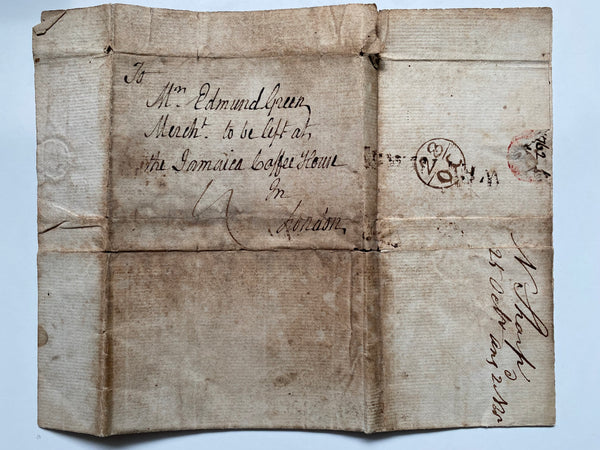 To
Mr. Edmund Green
Mercht. to be left at
the Jamaica Coffee House
In
London
28
OC
N Sharp
25 Octobr ansd 2 Nov